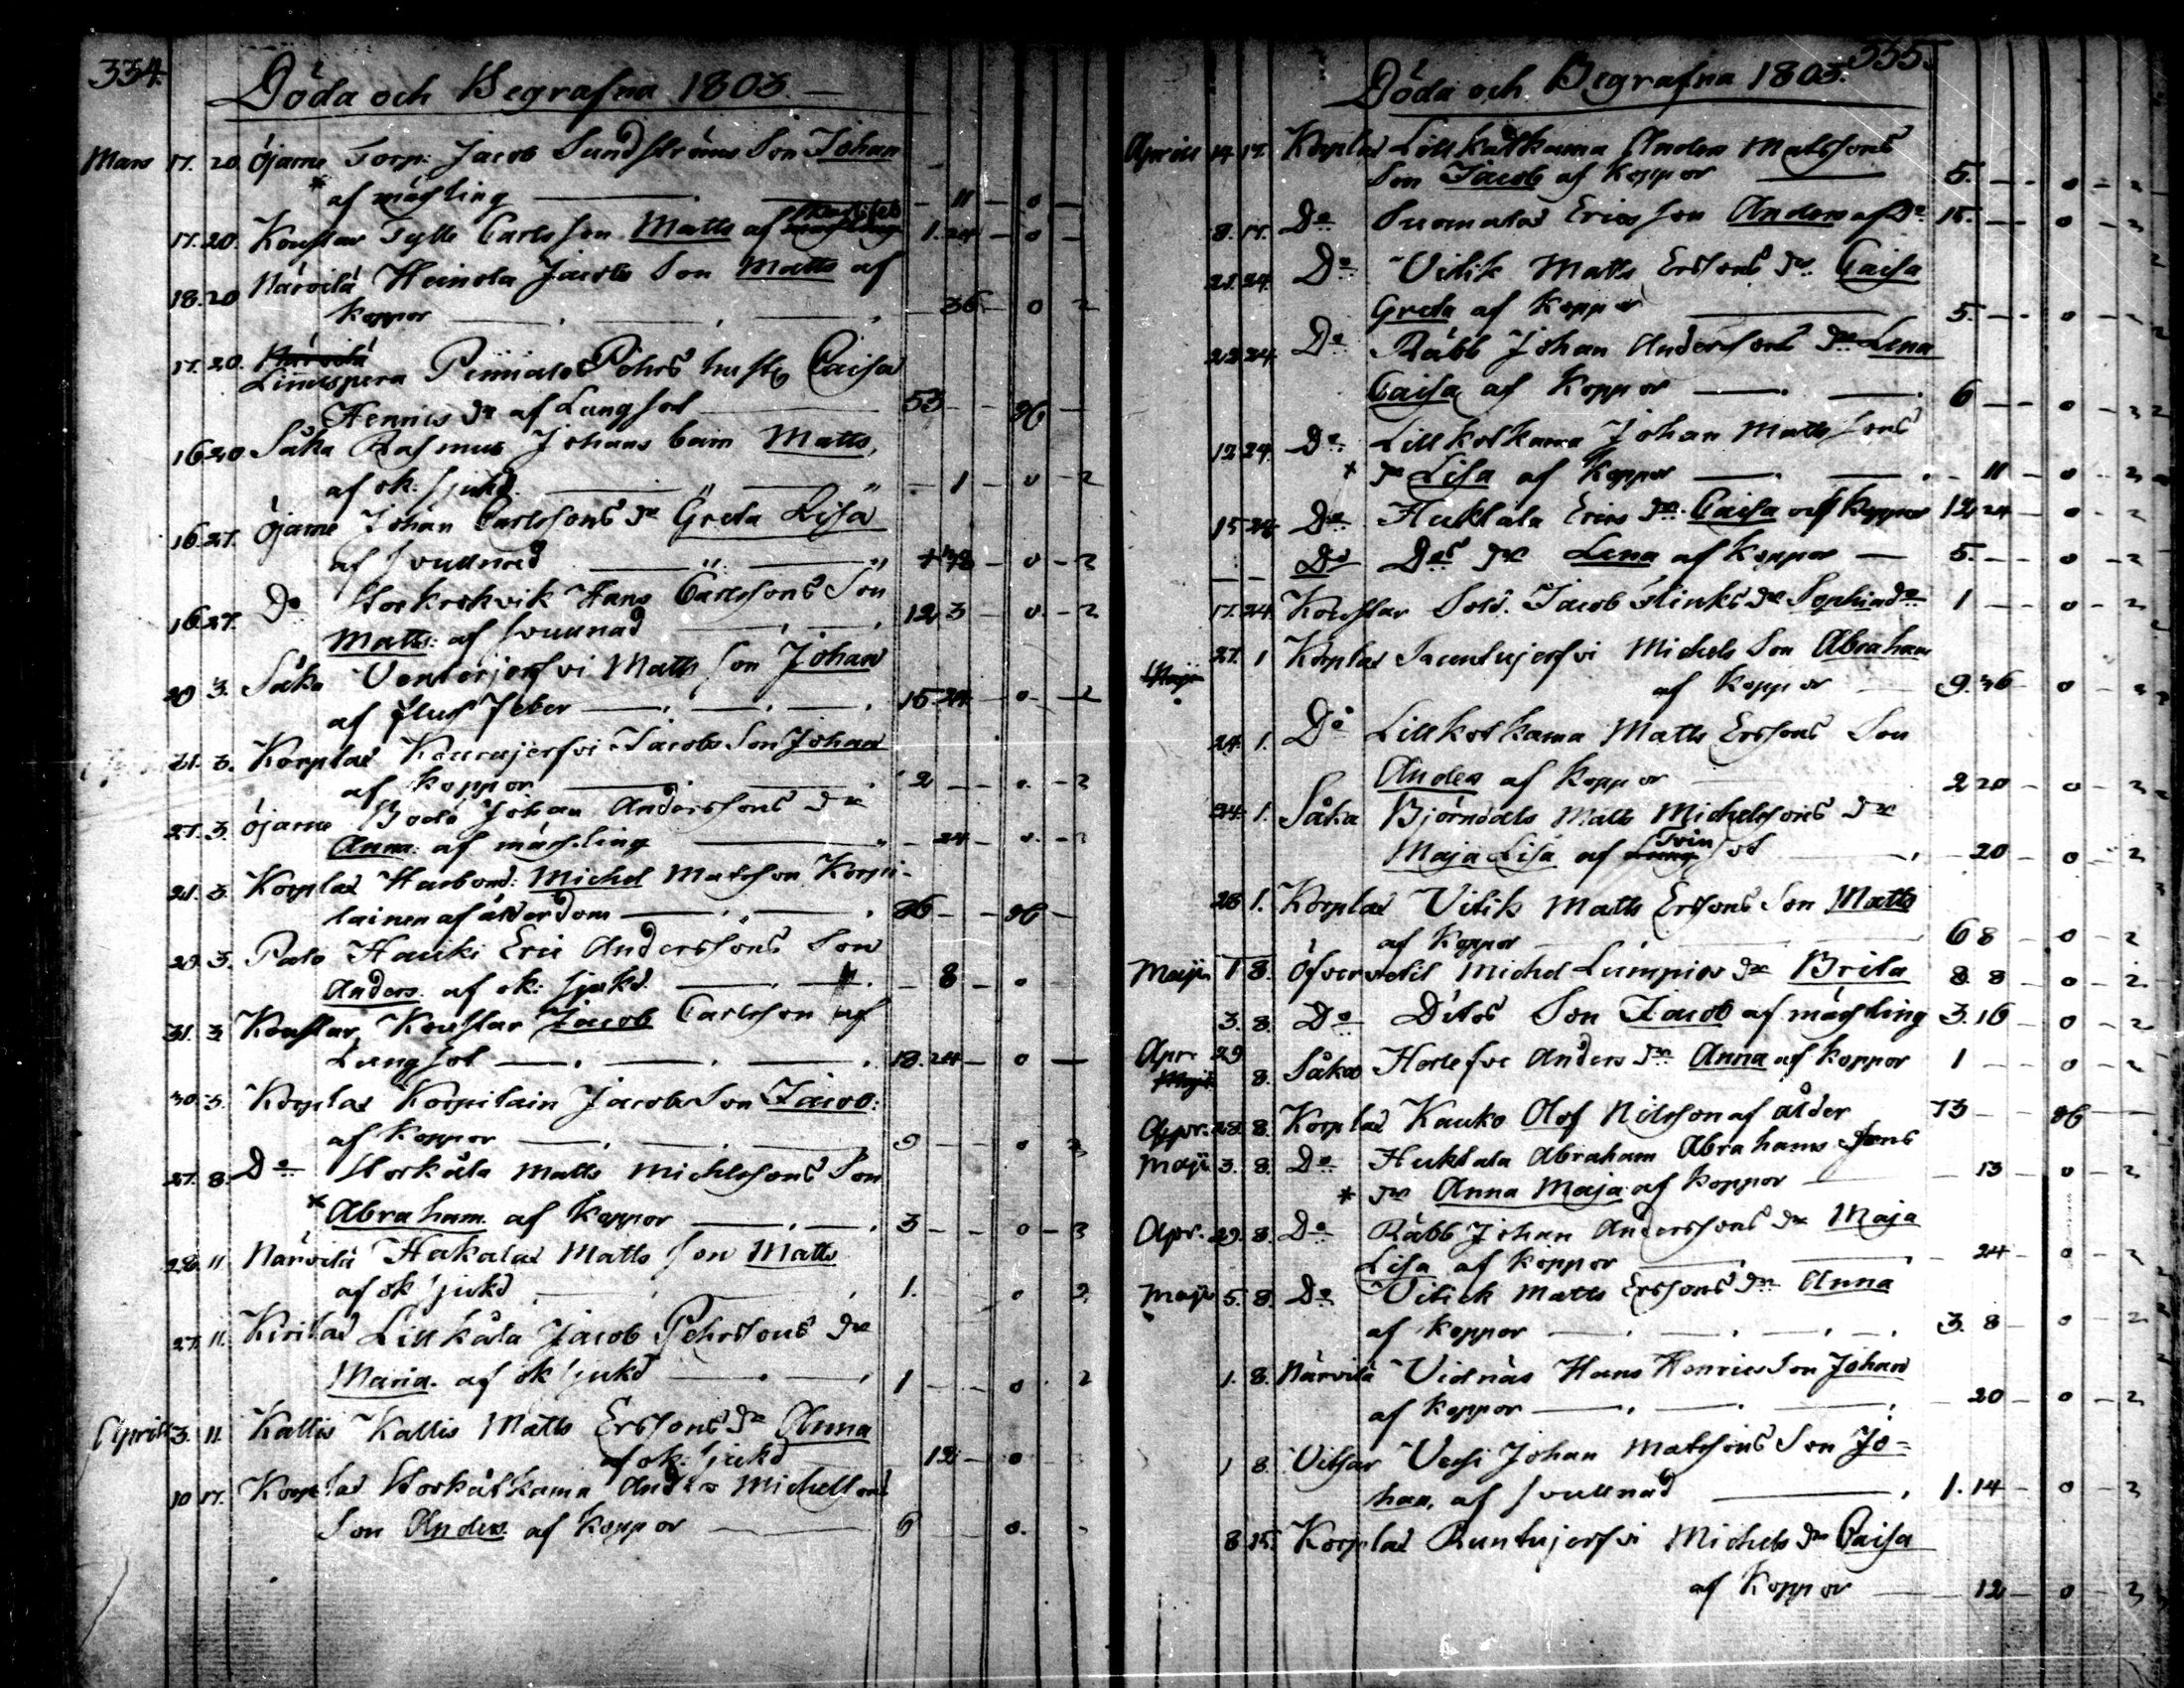 334.
Döda och Begrafna 1803.
Mars 17. 20. Öjarne Torp: Jacob Sundströms Son Johan
* af mäsling — 11 — 0 —
17. 20. Koustar Tylli Carls son Matts af 1. 24 — 0 —
18. 20 Närvilä Heinola Jacobs Son Matts af
koppor — 36 — 0 2
17. 20. Närvilä
Linuspera Pehrs hustru Caisa
Henrics dr af Lungsot — 53 — 96 —
16 20 Såka Rasmus Johans barn Matts,
af ok: sjukd. — 1 — 0 — 2
16. 27. Öjarne Johan Carlssons dr Greta Lisa
af svullnad — 0 — 2
16. 27. Do Storkorkvik Hans Carlssons Son
Matts: af svullnad — 12 3 — 0 — 2
29 3. Såka Venterjerfvi Matts son Johan
af fluss feber — 15 24 — 0 — 2
31. 3. Korplax Kourujerfvi Jacobs Son Johan
af koppor — 2 — 0 — 2
27. 3. Öjarne Bodö Johan Anderssons dr
Anna: af mäsling — 24 — 0 — 2
21. 3. Korplax Husbond: Michel Matsson Korpi-
lainen af ålderdom — 86 — 96 —
29. 3. Palo Hauki Eric Anderssons Son
Anders. af ok: sjukd. — 8 — 0
31. 3 Koustar, Koustar Jacob Carlsson af
Lungsot — 18. 24 — 0 —
30. 3. Korplax Korpilain Jacobs Son Jacob:
af koppor — 9 — 0 2
27. 8. Do Storkåla Matts Michelssons Son
* Abraham. af koppor — 3 — 0 — 3
28. 11. Närvilä Hakalax Matts son Matts
af ok sjukd — 1. 0 2.
27. 11. Kirilax Lillkåla Jacob Pehrssons dr
Maria. af ok sjukd — 1 — 0 . 2
Aprill 3. 11. Kallis Kallis Matts Erssons dr Anna
af ok: sjukd 12 — 0
10 17. Korplax Storkåtkama Anders Michelsons
Son Anders. af koppor — 6 0.
335.
Döda och Begrafna 1803.
Aprill 14 17. Korplax Lillkåtkama Anders Matssons
Son Jacob af koppor — 5. — 0 — 2
8. 17. Do Suomalax Erics son Anders af Do 15. — 0 — 2
21. 24. Do Vitik Matts Erssons dr Caisa
Greta af koppor — 5. — 0 — 2
22 24. Do Räbb Johan Anderssons dr Lena
Caisa af koppor — 6 — 0 — 2
12 24. Do Lillkotkama Johan Mattssons
* dr Lisa af koppor — 11 — 0 — 2
15 24. Do Huktala Erics dr Caisa af koppor 12 24 — 0 — 2
— — Do Dos dr Lena af koppor — 5. — 0 — 2
17. 24. Koustar Sold. Jacob Flinks dr Sophia do 1 — 0 — 2
27. 1 Korplax Michels Son Abraham
Maji af koppor — 9. 36 — 0 — 2
24. 1. Do Lillkotkama Matts Erssons Son
Anders af koppor 2 20 — 0 — 2
24. 1. Såka Björndals Matts Michelssons dr
Maja Lisa af Tvinsot — 20 — 0 — 2
28 1. Korplax Vitik Matts Erssons Son Matts
af koppor — 6 8 — 0 — 2
Maji 1 8. Öfvervetil Michel Lumpios dr Brita 8. 8 — 0 — 2
3. 8. Do Ditos Son Jacob af mäsling 3. 16 — 0 — 2
Apr. 29 8. Såka Anders dr Anna af koppor 1 — 0 — 2
Maji
Apr. 28. 8. Korplax Kauko Olof Nilsson af ålder 73 — 96 —
Maji 3. 8. Do Huktala Abraham Abrahams sons
* dr Anna Maja af koppor — 13 — 0 — 2
Apr. 29. 8. Do Räbb Johan Anderssons dr Maja
Lisa af koppor — 24 — 0 — 2
Maji 5. 8. Do Vitick Matts Erssons dr Anna
af koppor — 3. 8 — 0 — 2
1. 8. Närvilä Vidnäs Hans Henrics Son Johan
af koppor — 20 — 0 — 2
1 8. Vitsar Johan Matssons Son Jo-
han, af svullnad — 1. 14 — 0 — 2
8. 15. Korplax Runtujerfvi Michels dr Caisa
af koppor — 12 — 0 — 2